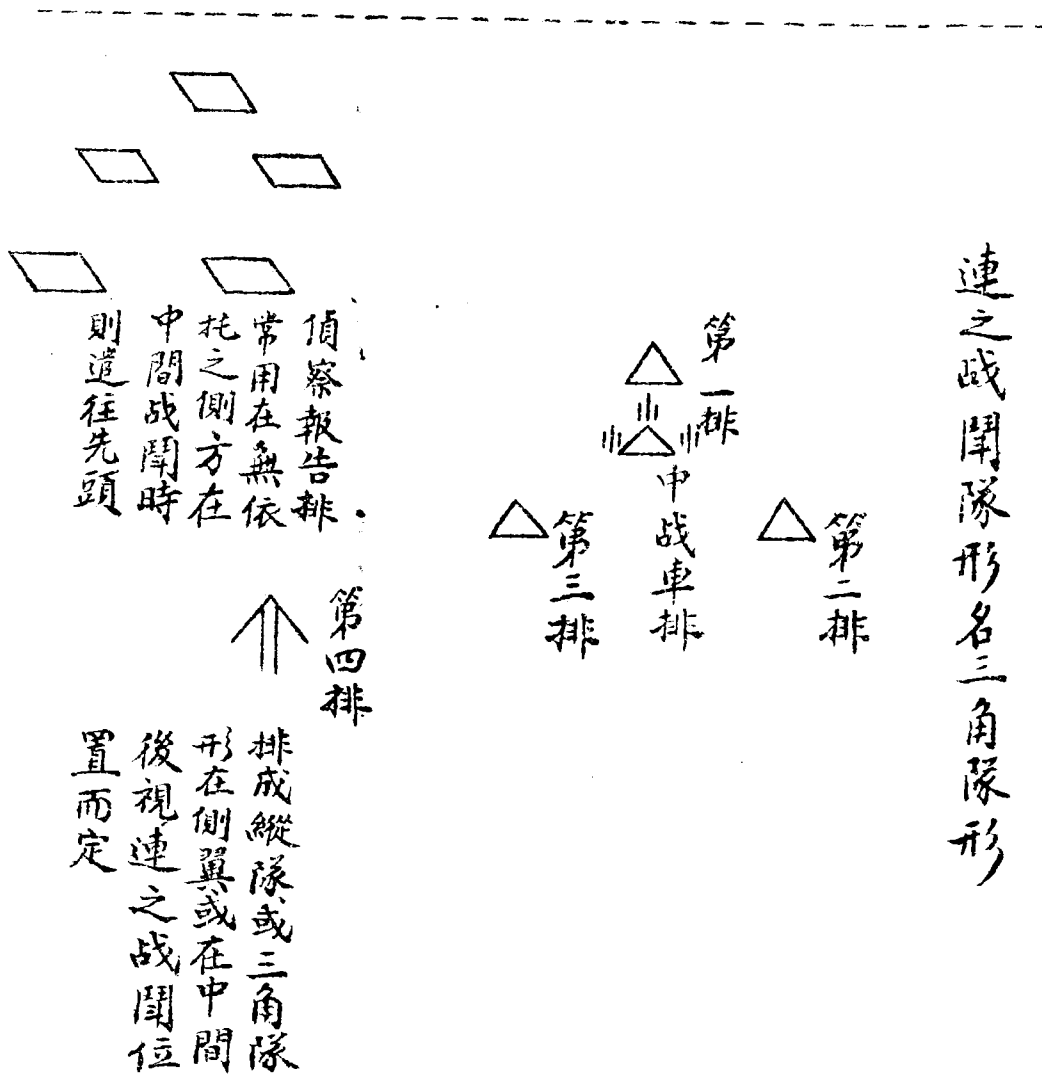 連之战鬦隊形名三角隊形
第一排
第二排
中战車排
第三排
偵察報告排
常用在無依
托之側方在
中間战鬦時
則遣往先頭
第四排
排成縱隊或三角隊
形在側翼或在中間
後視連之战鬦位
置而定